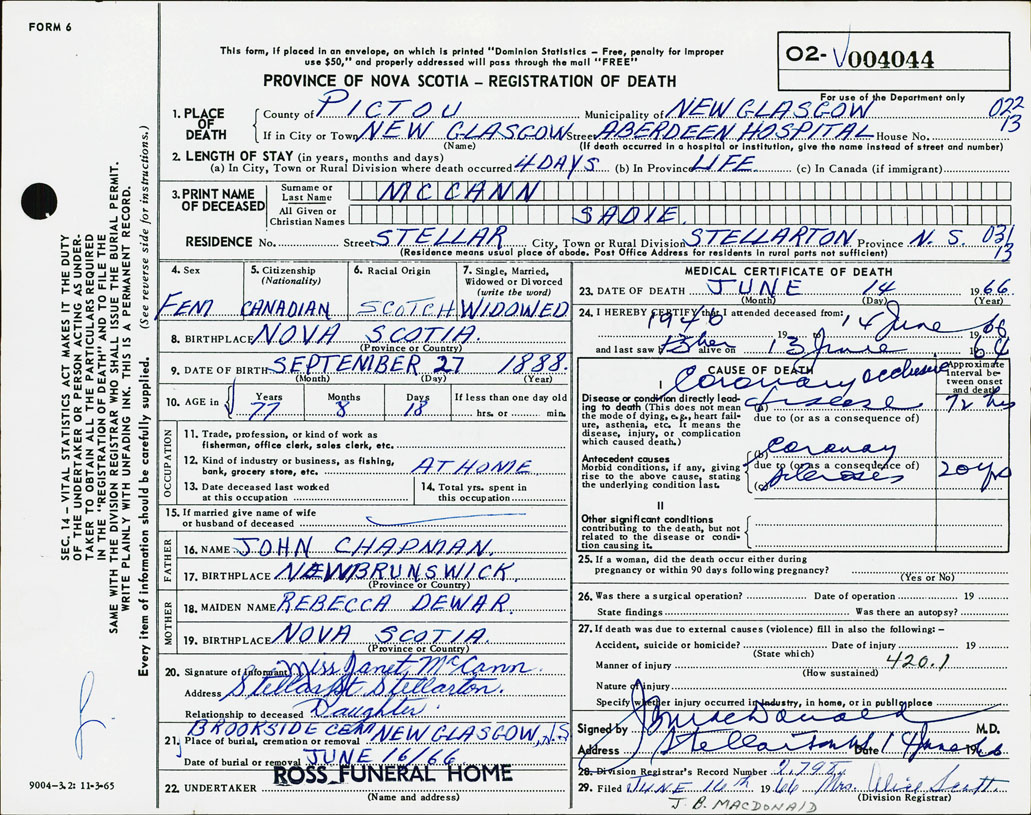 FORM 6
This form, if placed in an envelope, on which is printed "Dominion Statistics - Free, penalty for improper
use $50," and properly addressed will pass through the mail "FREE"
O2- 004044
PROVINCE OF NOVA SCOTIA - REGISTRATION OF DEATH
For use of the Department only
1. PLACE OF DEATH
County of PICTOU Municipality of NEW GLASGOW 022
If in City or Town NEW GLASGOW Street ABERDEEN HOSPITAL House No. 13
(Name) (If death occurred in a hospital or institution, give the name instead of street and number)
2. LENGTH OF STAY (in years, months and days)
(a) In City, Town or Rural Division where death occurred 4 DAYS (b) In Province LIFE (c) In Canada (if immigrant)
3. PRINT NAME OF DECEASED
Surname or Last Name MCCANN
All Given or Christian Names SADIE.
RESIDENCE No. Street STELLAR City, Town or Rural Division STELLARTON Province N. S. 031
(Residence means usual place of abode. Post Office Address for residents in rural parts not sufficient) 13
4. Sex FEM
5. Citizenship (Nationality) CANADIAN
6. Racial Origin SCOTCH
7. Single, Married, Widowed or Divorced (write the word) WIDOWED
8. BIRTHPLACE NOVA SCOTIA.
(Province or Country)
9. DATE OF BIRTH SEPTEMBER 27 1888.
(Month) (Day) (Year)
10. AGE in Years 77 Months 8 Days 18 If less than one day old hrs. or min.
OCCUPATION
11. Trade, profession, or kind of work as
fisherman, office clerk, sales clerk, etc.
12. Kind of industry or business, as fishing,
bank, grocery store, etc. AT HOME
13. Date deceased last worked
at this occupation
14. Total yrs. spent in
this occupation
15. If married give name of wife
or husband of deceased
FATHER
16. NAME JOHN CHAPMAN.
17. BIRTHPLACE NEW BRUNSWICK.
(Province or Country)
MOTHER
18. MAIDEN NAME REBECCA DEWAR.
19. BIRTHPLACE NOVA SCOTIA.
(Province or Country)
20. Signature of Informant Miss Janet McCann.
Address Stellar St Stellarton.
Relationship to deceased Daughter.
BROOKSIDE CEM NEW GLASGOW, N.S.
21. Place of burial, cremation or removal
Date of burial or removal JUNE 16/66
22. UNDERTAKER ROSS FUNERAL HOME
(Name and address)
MEDICAL CERTIFICATE OF DEATH
23. DATE OF DEATH JUNE 14 1966
(Month) (Day) (Year)
24. I HEREBY CERTIFY that I attended deceased from:
1946 19 to 14 June 66
and last saw her alive on 13 June
CAUSE OF DEATH
Approximate interval between onset and death
I
Disease or condition directly leading to death (This does not
the mode of dying, e.g., heart failure, asthenia, etc. It means the
disease, injury, or complication
which caused death.)
(a) Coronary occlusive disease 72 hrs
due to (or as a consequence of)
Antecedent causes
Morbid conditions, if any, giving
rise to the above cause, stating
the underlying condition last.
(b) Coronary
due to (or as a consequence of)
(c) 20 yrs
II
Other significant conditions
contributing to the death, but not
related to the disease or condition causing it.
25. If a woman, did the death occur either during
pregnancy or within 90 days following pregnancy?
(Yes or No)
26. Was there a surgical operation? Date of operation 19
State findings Was there an autopsy?
27. If death was due to external causes (violence) fill in also the following: -
Accident, suicide or homicide? Date of injury 19
(State which)
Manner of injury 420.1
(How sustained)
Nature of injury
Specify whether injury occurred in industry, in home, or in public place
Signed by MacDonald M.D.
Address Stellarton Date 14 June 1966
28. Division Registrar's Record Number
29. Filed JUNE 16th 1966 Mrs. Alice Scott
(Division Registrar)
J. B. MACDONALD
SEC. 14 - VITAL STATISTICS ACT MAKES IT THE DUTY
OF THE UNDERTAKER OR PERSON ACTING AS UNDER-
TAKER TO OBTAIN ALL THE PARTICULARS REQUIRED
IN THE "REGISTRATION OF DEATH" AND TO FILE THE
SAME WITH THE DIVISION REGISTRAR WHO SHALL ISSUE THE BURIAL PERMIT.
WRITE PLAINLY WITH UNFADING INK. THIS IS A PERMANENT RECORD.
Every item of information should be carefully supplied. (See reverse side for instructions.)
9004-3.2: 11-3-65